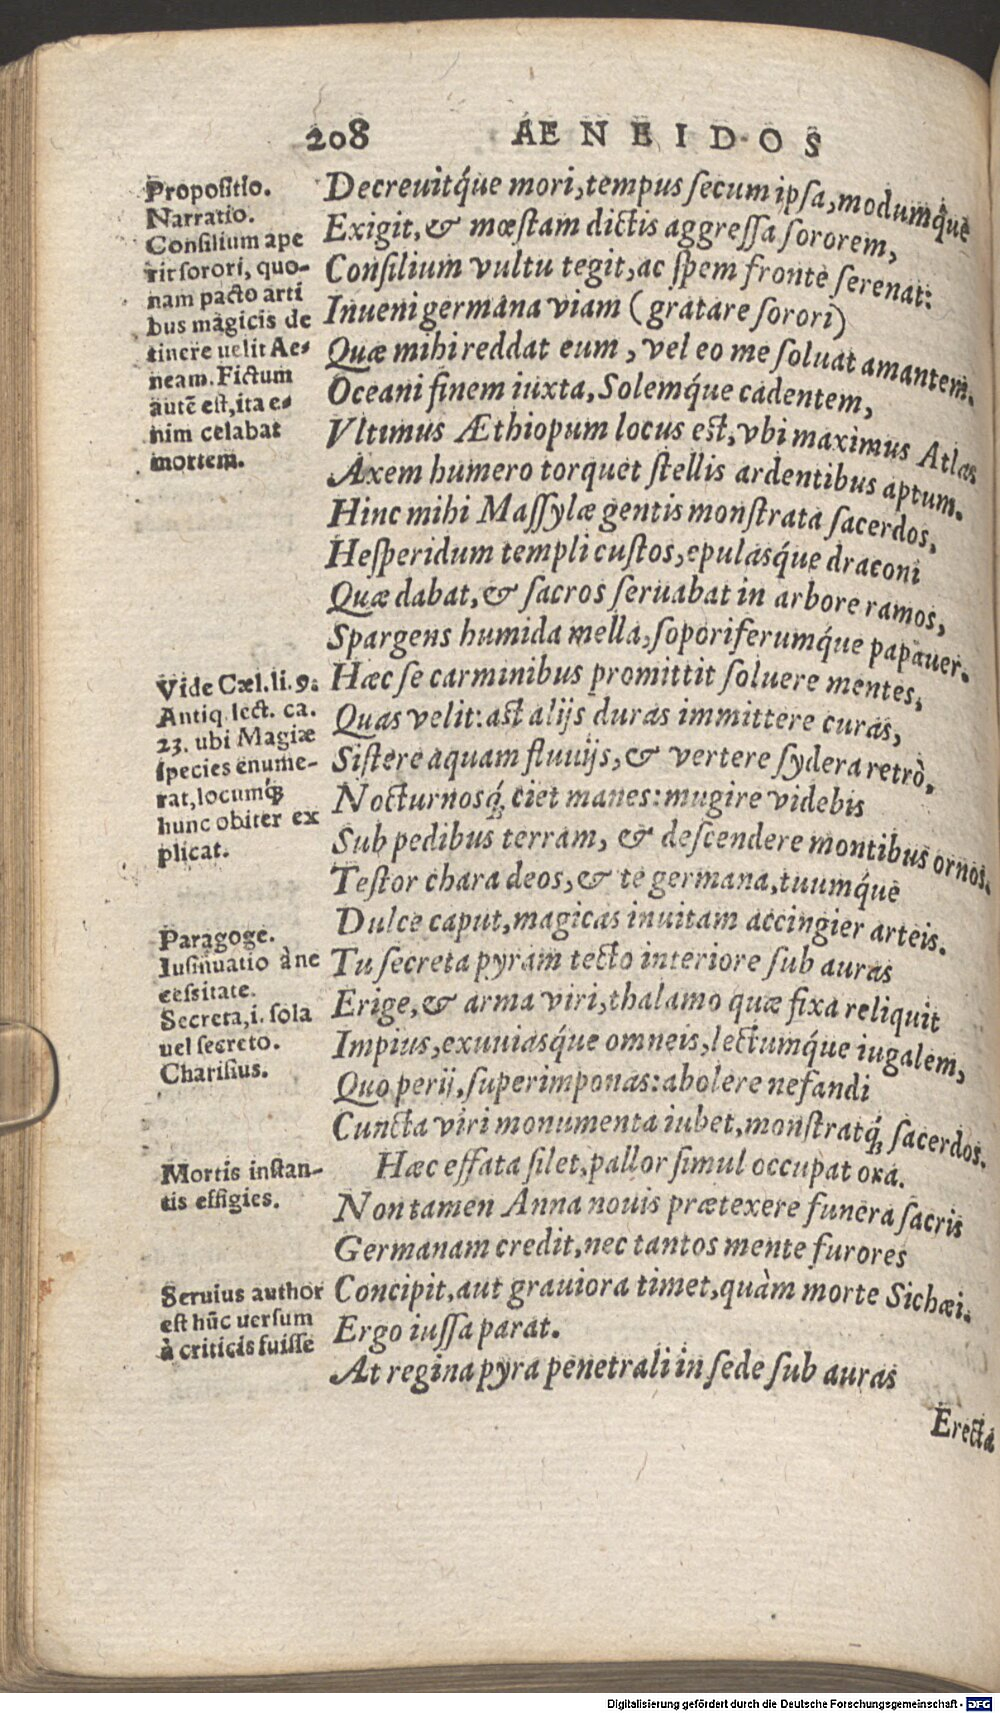 208 AENEIDOS
Propositio.
Narratio.
Consilium ape
rit sorori, quo-
nam pacto arti
bus magicis de
tinere uelit Ae-
neam. Fictum
autē est, ita e-
nim celabat
mortem.
Decreuitq́ue mori, tempus secum ipsa, modumq̀ue
Exigit, & mœstam dictis aggressa sororem,
Consilium vultu tegit, ac spem fronte serenat:
Inueni germana viam (gratare sorori)
Quæ mihi reddat eum, vel eo me soluat amantem.
Oceani finem iuxta, Solemq́ue cadentem,
Vltimus Æthiopum locus est, vbi maximus Atlas
Axem humero torquet stellis ardentibus aptum.
Hinc mihi Massylæ gentis monstrata sacerdos,
Hesperidum templi custos, epulasq́ue draconi
Quæ dabat, & sacros seruabat in arbore ramos,
Spargens humida mella, soporiferumq́ue papauer.
Vide Cæl. li. 9.
Antiq. lect. ca.
23. ubi Magiæ
species enume-
rat, locumq́;
hunc obiter ex
plicat.
Hæc se carminibus promittit soluere mentes,
Quas velit: ast alijs duras immittere curas,
Sistere aquam fluuijs, & vertere sydera retrò,
Nocturnosq́; ciet manes: mugire videbis
Sub pedibus terram, & descendere montibus ornos.
Testor chara deos, & te germana, tuumq́ue
Dulce caput, magicas inuitam accingier arteis.
Paragoge.
Iusinuatio à ne
cessitate.
Secreta, i. sola
uel secreto.
Charisius.
Tu secreta pyram tecto interiore sub auras
Erige, & arma viri, thalamo quæ fixa reliquit
Impius, exuuiasq́ue omneis, lectumq́ue iugalem,
Quo perij, superimponas: abolere nefandi
Cuncta viri monumenta iubet, monstratq́; sacerdos.
Mortis instan-
tis effigies.
Hæc effata silet, pallor simul occupat ora.
Non tamen Anna nouis prætexere funera sacris
Germanam credit, nec tantos mente furores
Seruius author
est hūc uersum
à criticis fuisse
Concipit, aut grauiora timet, quàm morte Sichæi.
Ergo iussa parat.
At regina pyra penetrali in sede sub auras
Erecta
Digitalisierung gefördert durch die Deutsche Forschungsgemeinschaft - DFG